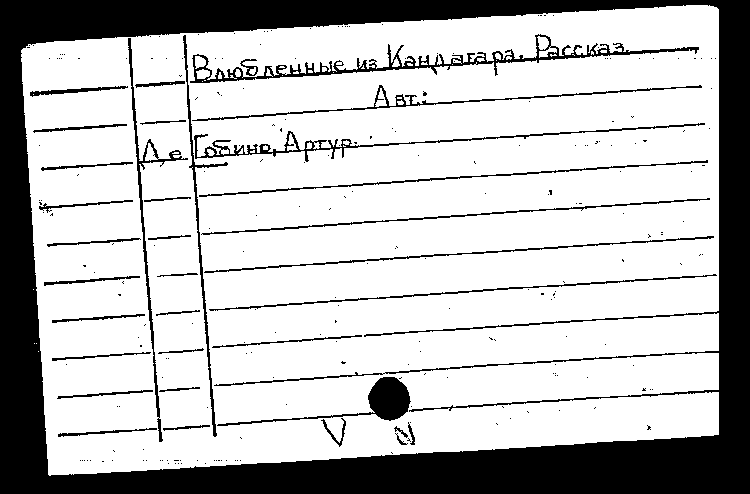 Влюбленные из Кандагара. Рассказ.
Авт.:
Де Гобино, Артур.
V